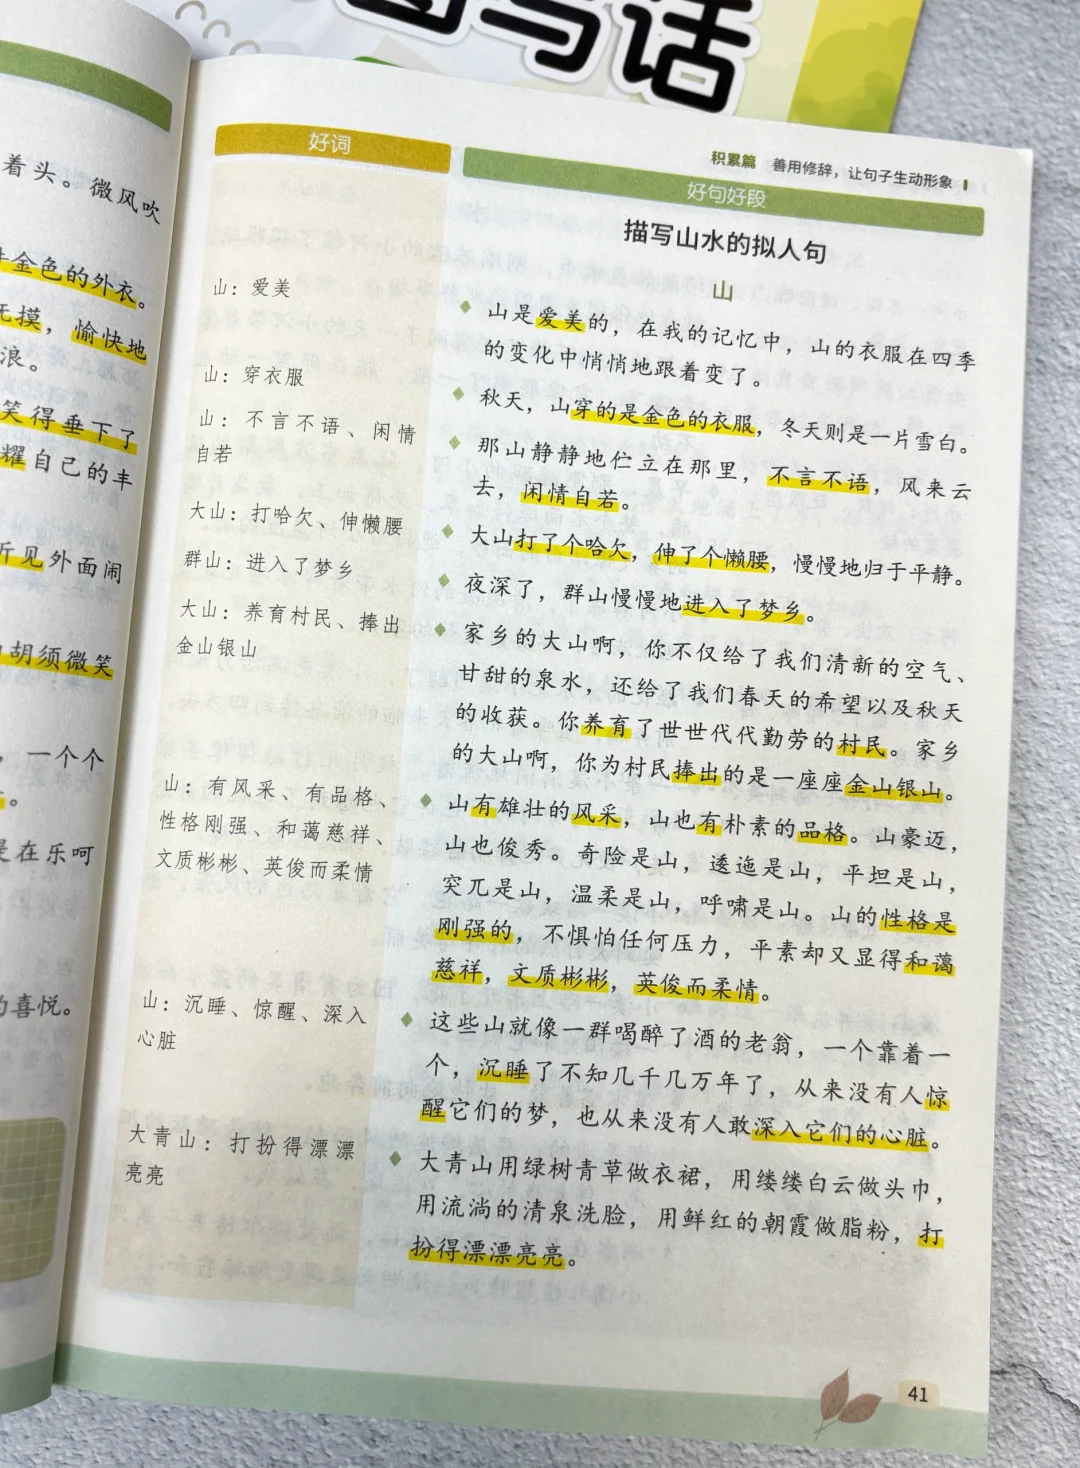 写话
着头。微风吹
金色的外衣。
抚摸，愉快地
浪。
笑得垂下了
耀自己的丰
听见外面闹
胡须微笑
，一个个
是在乐呵
的喜悦。
积累篇 善用修辞，让句子生动形象
好词
山：爱美
山：穿衣服
山：不言不语、闲情
自若
大山：打哈欠、伸懒腰
群山：进入了梦乡
大山：养育村民、捧出
金山银山
山：有风采、有品格、
性格刚强、和蔼慈祥、
文质彬彬、英俊而柔情
山：沉睡、惊醒、深入
心脏
大青山：打扮得漂漂
亮亮
好句好段
描写山水的拟人句
山
山是爱美的，在我的记忆中，山的衣服在四季
的变化中悄悄地跟着变了。
秋天，山穿的是金色的衣服，冬天则是一片雪白。
那山静静地伫立在那里，不言不语，风来云
去，闲情自若。
大山打了个哈欠，伸了个懒腰，慢慢地归于平静。
夜深了，群山慢慢地进入了梦乡。
家乡的大山啊，你不仅给了我们清新的空气、
甘甜的泉水，还给了我们春天的希望以及秋天
的收获。你养育了世世代代勤劳的村民。家乡
的大山啊，你为村民捧出的是一座座金山银山。
山有雄壮的风采，山也有朴素的品格。山豪迈，
山也俊秀。奇险是山，逶迤是山，平坦是山，
突兀是山，温柔是山，呼啸是山。山的性格是
刚强的，不惧怕任何压力，平素却又显得和蔼
慈祥，文质彬彬，英俊而柔情。
这些山就像一群喝醉了酒的老翁，一个靠着一
个，沉睡了不知几千几万年了，从来没有人惊
醒它们的梦，也从来没有人敢深入它们的心脏。
大青山用绿树青草做衣裙，用缕缕白云做头巾，
用流淌的清泉洗脸，用鲜红的朝霞做脂粉，打
扮得漂漂亮亮。
41